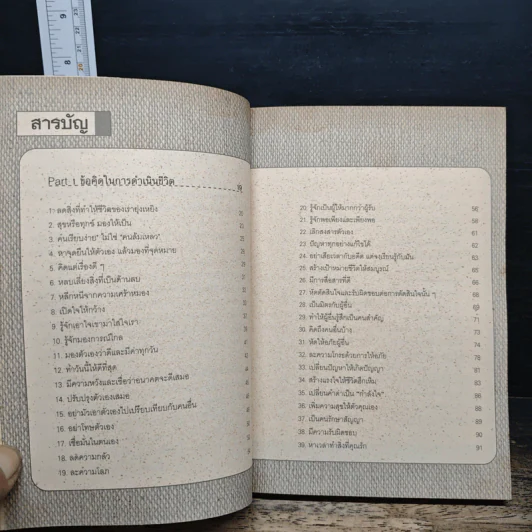 สารบัญ
Part 1 ข้อคิดในการดำเนินชีวิต
1. ลดสิ่งที่ทำให้ชีวิตของเรายุ่งเหยิง
2. สุขหรือทุกข์ มองให้เป็น
3. คนเรียบง่าย ไม่ใช่ "คนล้มเหลว"
4. หาจุดยืนให้ตัวเอง แล้วมองที่จุดหมาย
5. คิดแต่เรื่องดี ๆ
6. หลบเลี่ยงสิ่งที่เป็นด้านลบ
7. หลีกหนีจากความเศร้าหมอง
8. เปิดใจให้กว้าง
9. รู้จักเอาใจเขามาใส่ใจเรา
10. รู้จักมองการณ์ไกล
11. มองตัวเองว่าดีและมีค่าทุกวัน
12. ทำวันนี้ให้ดีที่สุด
13. มีความหวังและเชื่อว่าอนาคตจะดีเสมอ
14. ปรับปรุงตัวเองเสมอ
15. อย่ามัวเอาตัวเองไปเปรียบเทียบกับคนอื่น
16. อย่าโทษตัวเอง
17. เชื่อมั่นในตนเอง
18. ลดความกลัว
19. ละความโลภ
20. รู้จักเป็นผู้ให้มากกว่าผู้รับ 56
21. รู้จักพอเพียงและเพียงพอ 58
22. เลิกสงสารตัวเอง 61
23. ปัญหาทุกอย่างแก้ไขได้ 62
24. อย่าเสียเวลากับอดีต แต่จงเรียนรู้กับมัน 63
25. สร้างเป้าหมายชีวิตให้สมบูรณ์
26. มีการสื่อสารที่ดี
27. หัดตัดสินใจและรับผิดชอบต่อการตัดสินใจนั้น ๆ
28. เป็นมิตรกับผู้อื่น 69
29. ทำให้ผู้อื่นรู้สึกเป็นคนสำคัญ 71
30. คิดถึงคนอื่นบ้าง 73
31. หัดให้อภัยผู้อื่น 74
32. ละความโกรธด้วยการให้อภัย 76
33. เปลี่ยนปัญหาให้เกิดปัญญา
34. สร้างแรงใจให้ชีวิตฮึกเหิม 81
35. เปลี่ยนคำด่าเป็น "กำลังใจ"
36. เพิ่มความสุขให้ตัวคุณเอง
37. เป็นคนรักษาสัญญา 88
38. มีความรับผิดชอบ 90
39. หาเวลาทำสิ่งที่คุณรัก 91